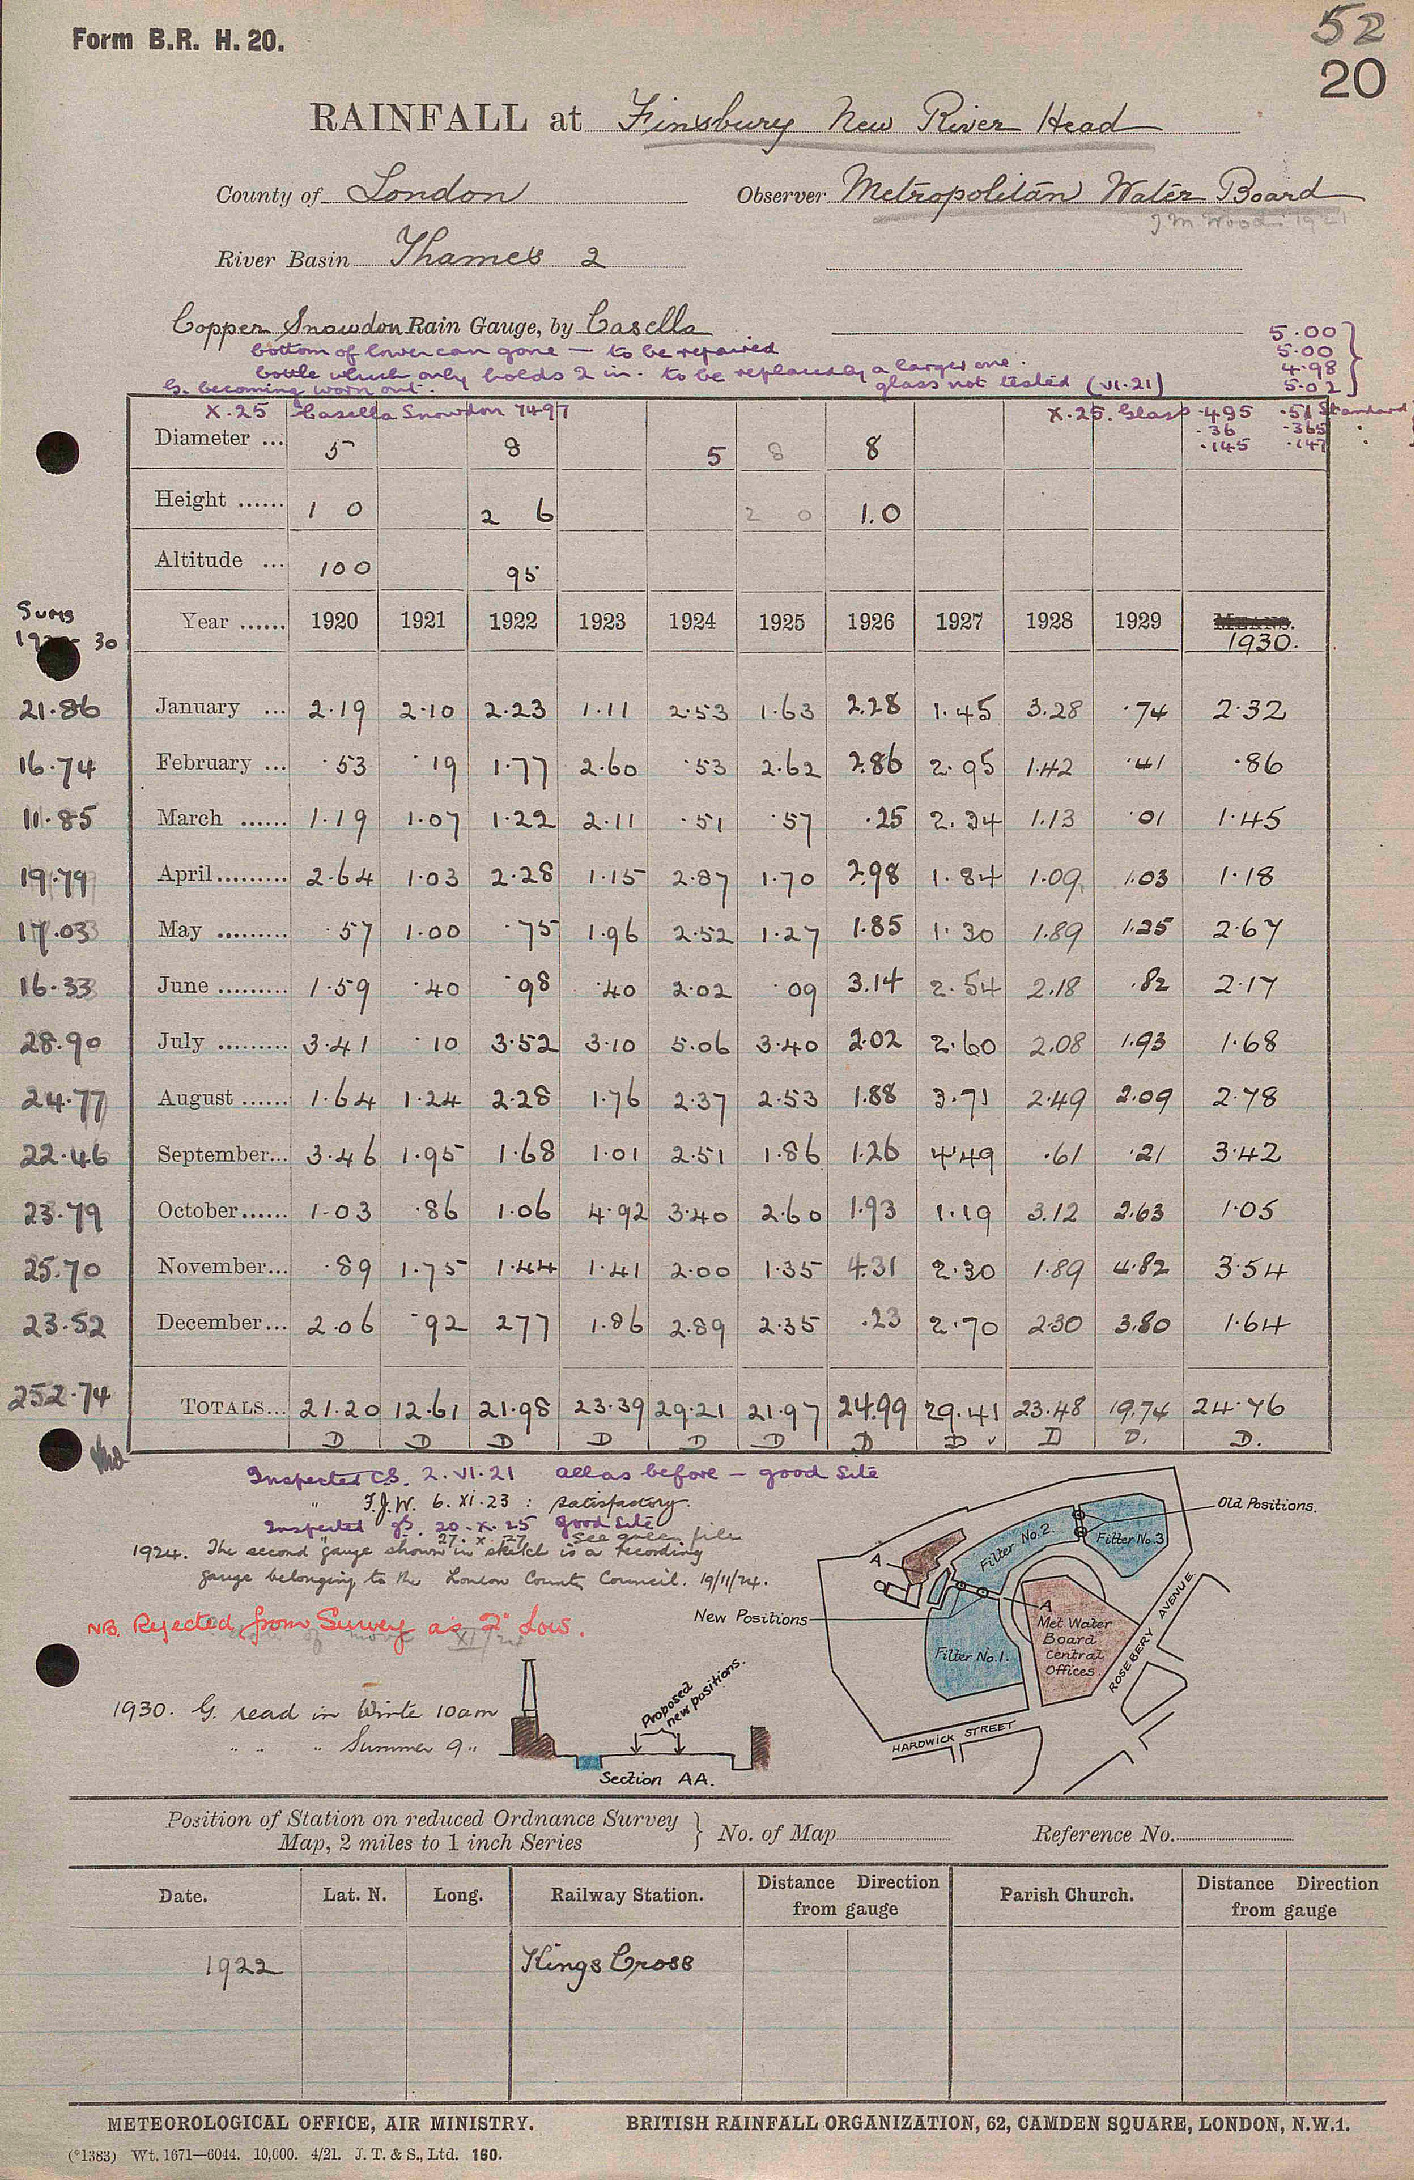 Form B.R. H. 20.
52
20
RAINFALL at Finsbury New River Head
County of London Observer Metropolitan Water Board
J M Wood 1921
River Basin Thames 2
Copper Snowdon Rain Gauge, by Casella
bottom of lower can gone — to be repaired
bottle which only holds 2 in. to be replaced by a larger one.
G. becoming worn out. glass not tested (VI.21)
5.00
5.00
4.98
5.02
X.25 Casella Snowdon 7497 X.25. Glass .495 .51 Standard
.36 .365
.145 .147
Diameter ... 5 8 5 8 8
Height ...... 1 0 2 6 2 0 1.0
Altitude ... 100 95
Sums
30
Year ...... 1920 1921 1922 1923 1924 1925 1926 1927 1928 1929 MEANS. 1930.
21.86 January ... 2.19 2.10 2.23 1.11 2.53 1.63 2.28 1.45 3.28 .74 2.32
16.74 February ... .53 .19 1.77 2.60 .53 2.62 2.86 2.95 1.42 .41 .86
11.85 March ...... 1.19 1.07 1.22 2.11 .51 .57 .25 2.34 1.13 .01 1.45
19.79 April ......... 2.64 1.03 2.28 1.15 2.87 1.70 2.98 1.84 1.09 1.03 1.18
17.03 May ......... .57 1.00 .75 1.96 2.52 1.27 1.85 1.30 1.89 1.25 2.67
16.33 June ......... 1.59 .40 .98 .40 2.02 .09 3.14 2.54 2.18 .82 2.17
28.90 July ......... 3.41 .10 3.52 3.10 5.06 3.40 2.02 2.60 2.08 1.93 1.68
24.77 August ...... 1.64 1.24 2.28 1.76 2.37 2.53 1.88 3.71 2.49 2.09 2.78
22.46 September... 3.46 1.95 1.68 1.01 2.51 1.86 1.26 4.49 .61 .21 3.42
23.79 October ...... 1.03 .86 1.06 4.92 3.40 2.60 1.93 1.19 3.12 2.63 1.05
25.70 November... .89 1.75 1.44 1.41 2.00 1.35 4.31 2.30 1.89 4.82 3.54
23.52 December... 2.06 .92 2.77 1.86 2.89 2.35 .23 2.70 2.30 3.80 1.64
252.74 TOTALS... 21.20 12.61 21.98 23.39 29.21 21.97 24.99 29.41 23.48 19.74 24.76
D D D D D D D D ✓ D D. D.
Inspected CS. 2.VI.21 all as before — good site
" F.J.W. 6.XI.23 : satisfactory.
Inspected 20.X.25 good site
" 27.X.27 see green file
1924. The second gauge shown in sketch is a recording
gauge belonging to the London County Council. 19/11/24.
N.B. Rejected from Survey as 2" low.
XI/24
1930. G. read in Winter 10 am
" " " Summer 9 "
Proposed new positions.
Section AA.
Old Positions.
Filter No.2.
Filter No.3
A
New Positions
A
Met Water
Board
Central
Offices
Filter No.1.
ROSEBERY AVENUE
HARDWICK STREET
Position of Station on reduced Ordnance Survey
Map, 2 miles to 1 inch Series } No. of Map Reference No.
Date. Lat. N. Long. Railway Station. Distance Direction from gauge Parish Church. Distance Direction from gauge
1922 Kings Cross
METEOROLOGICAL OFFICE, AIR MINISTRY. BRITISH RAINFALL ORGANIZATION, 62, CAMDEN SQUARE, LONDON, N.W.1.
(*1383) Wt. 1671—6044. 10,000. 4/21. J. T. & S., Ltd. 160.